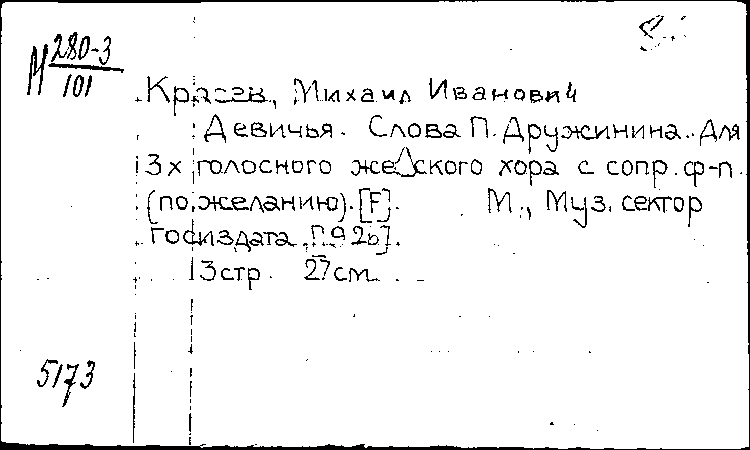 М 280-3
101
Красев, Михаил Иванович
Девичья. Слова П. Дружинина. Для
3х голосного женского хора с сопр. ф-п.
(по желанию). [F]. М., Муз. сектор
Госиздата, [192б].
3 стр. 27 см.
5173